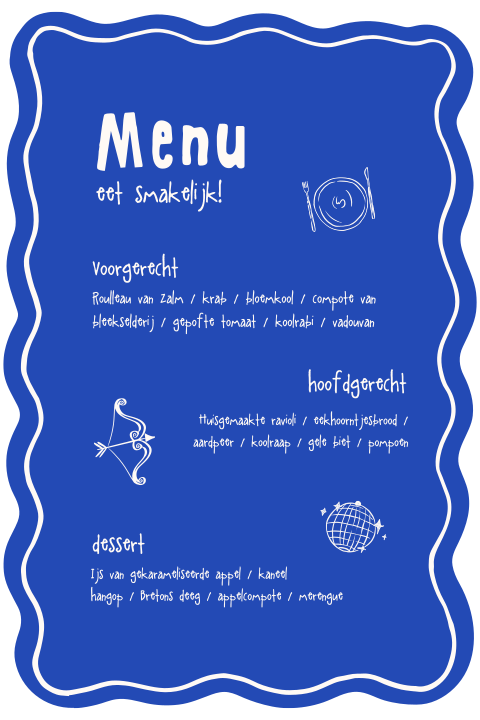 Menu
eet smakelijk!
voorgerecht
Roulleau van zalm / krab / bloemkool / compote van
bleekselderij / gepofte tomaat / koolrabi / vadouvan
hoofdgerecht
Huisgemaakte ravioli / eekhoorntjesbrood /
aardpeer / koolraap / gele biet / pompoen
dessert
Ijs van gekarameliseerde appel / kaneel
hangop / Bretons deeg / appelcompote / merengue